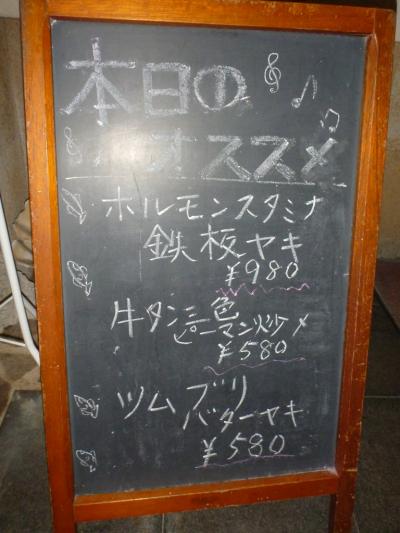 本日の
オススメ
ホルモンスタミナ
鉄板ヤキ
¥980
牛タン三色
ピーマン炒メ
¥580
ツムブリ
バターヤキ
¥580